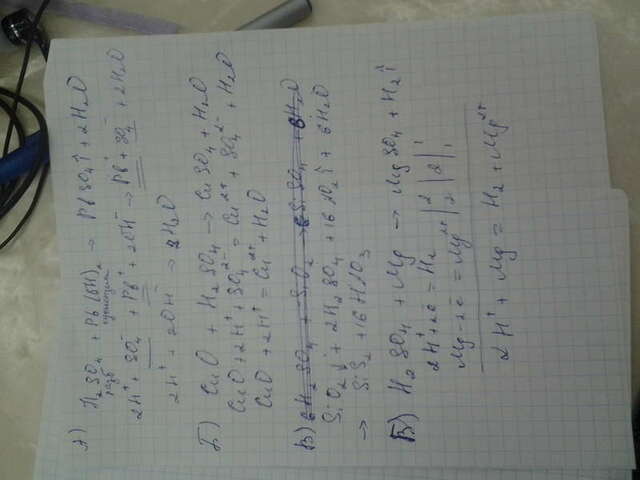 А) H2SO4 + Pb(OH)2 → PbSO4↑ + 2H2O
разб суспензия
2H⁺ + SO4⁻ + Pb⁺ + 2OH⁻ → Pb⁺ + SO4⁻ + 2H2O
2H⁺ + 2OH⁻ → 2H2O
Б) CuO + H2SO4 → CuSO4 + H2O
CuO + 2H⁺ + SO4²⁻ = Cu²⁺ + SO4²⁻ + H2O
CuO + 2H⁺ = Cu²⁺ + H2O
В) 6H2SO4 + SiO2 → SiSO4 + 6H2O
SiO2↓ + 2H2SO4 + 16NO2↑ + 6H2O
→ SiS2 + 16HNO3
Б) H2SO4 + Mg → MgSO4 + H2↑
2H⁺ + 2e = H2 | 2 | 2 | 1
Mg - 2e = Mg²⁺ | 2 | 1
2H⁺ + Mg = H2 + Mg²⁺